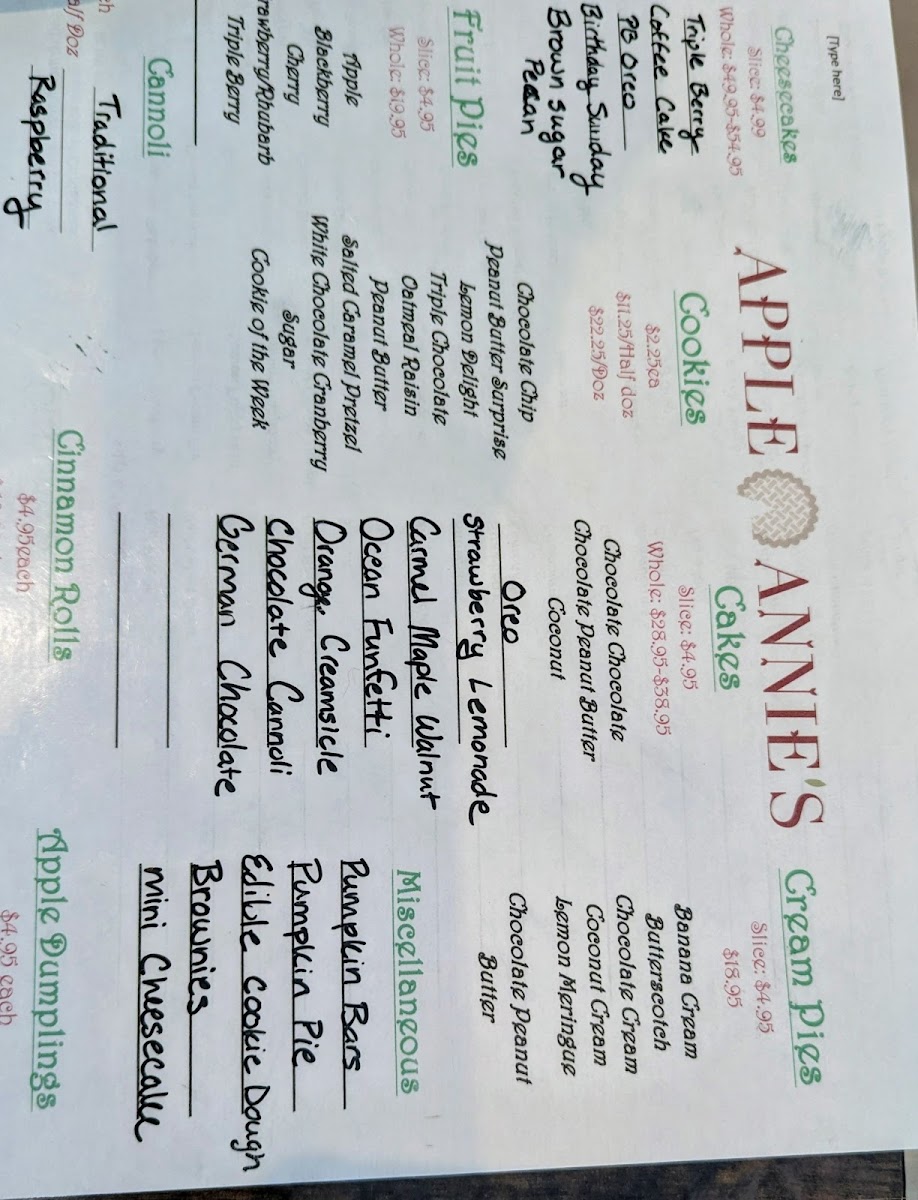 [Type here]
APPLE ANNIE'S
Cheesecakes
Slice: $4.99
Whole: $49.95-$54.95
Triple Berry
Coffee Cake
PB Oreo
Birthday Sunday
Brown sugar
Pecan
Fruit Pies
Slice: $4.95
Whole: $19.95
Apple
Blackberry
Cherry
rawberry/Rhubarb
Triple Berry
Cannoli
Traditional
Raspberry
Cookies
$2.25ea
$11.25/Half doz
$22.25/Doz
Chocolate Chip
Peanut Butter Surprise
Lemon Delight
Triple Chocolate
Oatmeal Raisin
Peanut Butter
Salted Caramel Pretzel
White Chocolate Cranberry
Sugar
Cookie of the Week
Cinnamon Rolls
$4.95each
Cakes
Slice: $4.95
Whole: $28.95-$38.95
Chocolate Chocolate
Chocolate Peanut Butter
Coconut
Oreo
Strawberry Lemonade
Carmel Maple Walnut
Ocean Funfetti
Orange Creamsicle
Chocolate Cannoli
German Chocolate
Cream Pies
Slice: $4.95
$18.95
Banana Cream
Butterscotch
Chocolate Cream
Coconut Cream
Lemon Meringue
Chocolate Peanut
Butter
Miscellaneous
Pumpkin Bars
Pumpkin Pie
Edible Cookie Dough
Brownies
mini Cheesecake
Apple Dumplings
$4.95 each